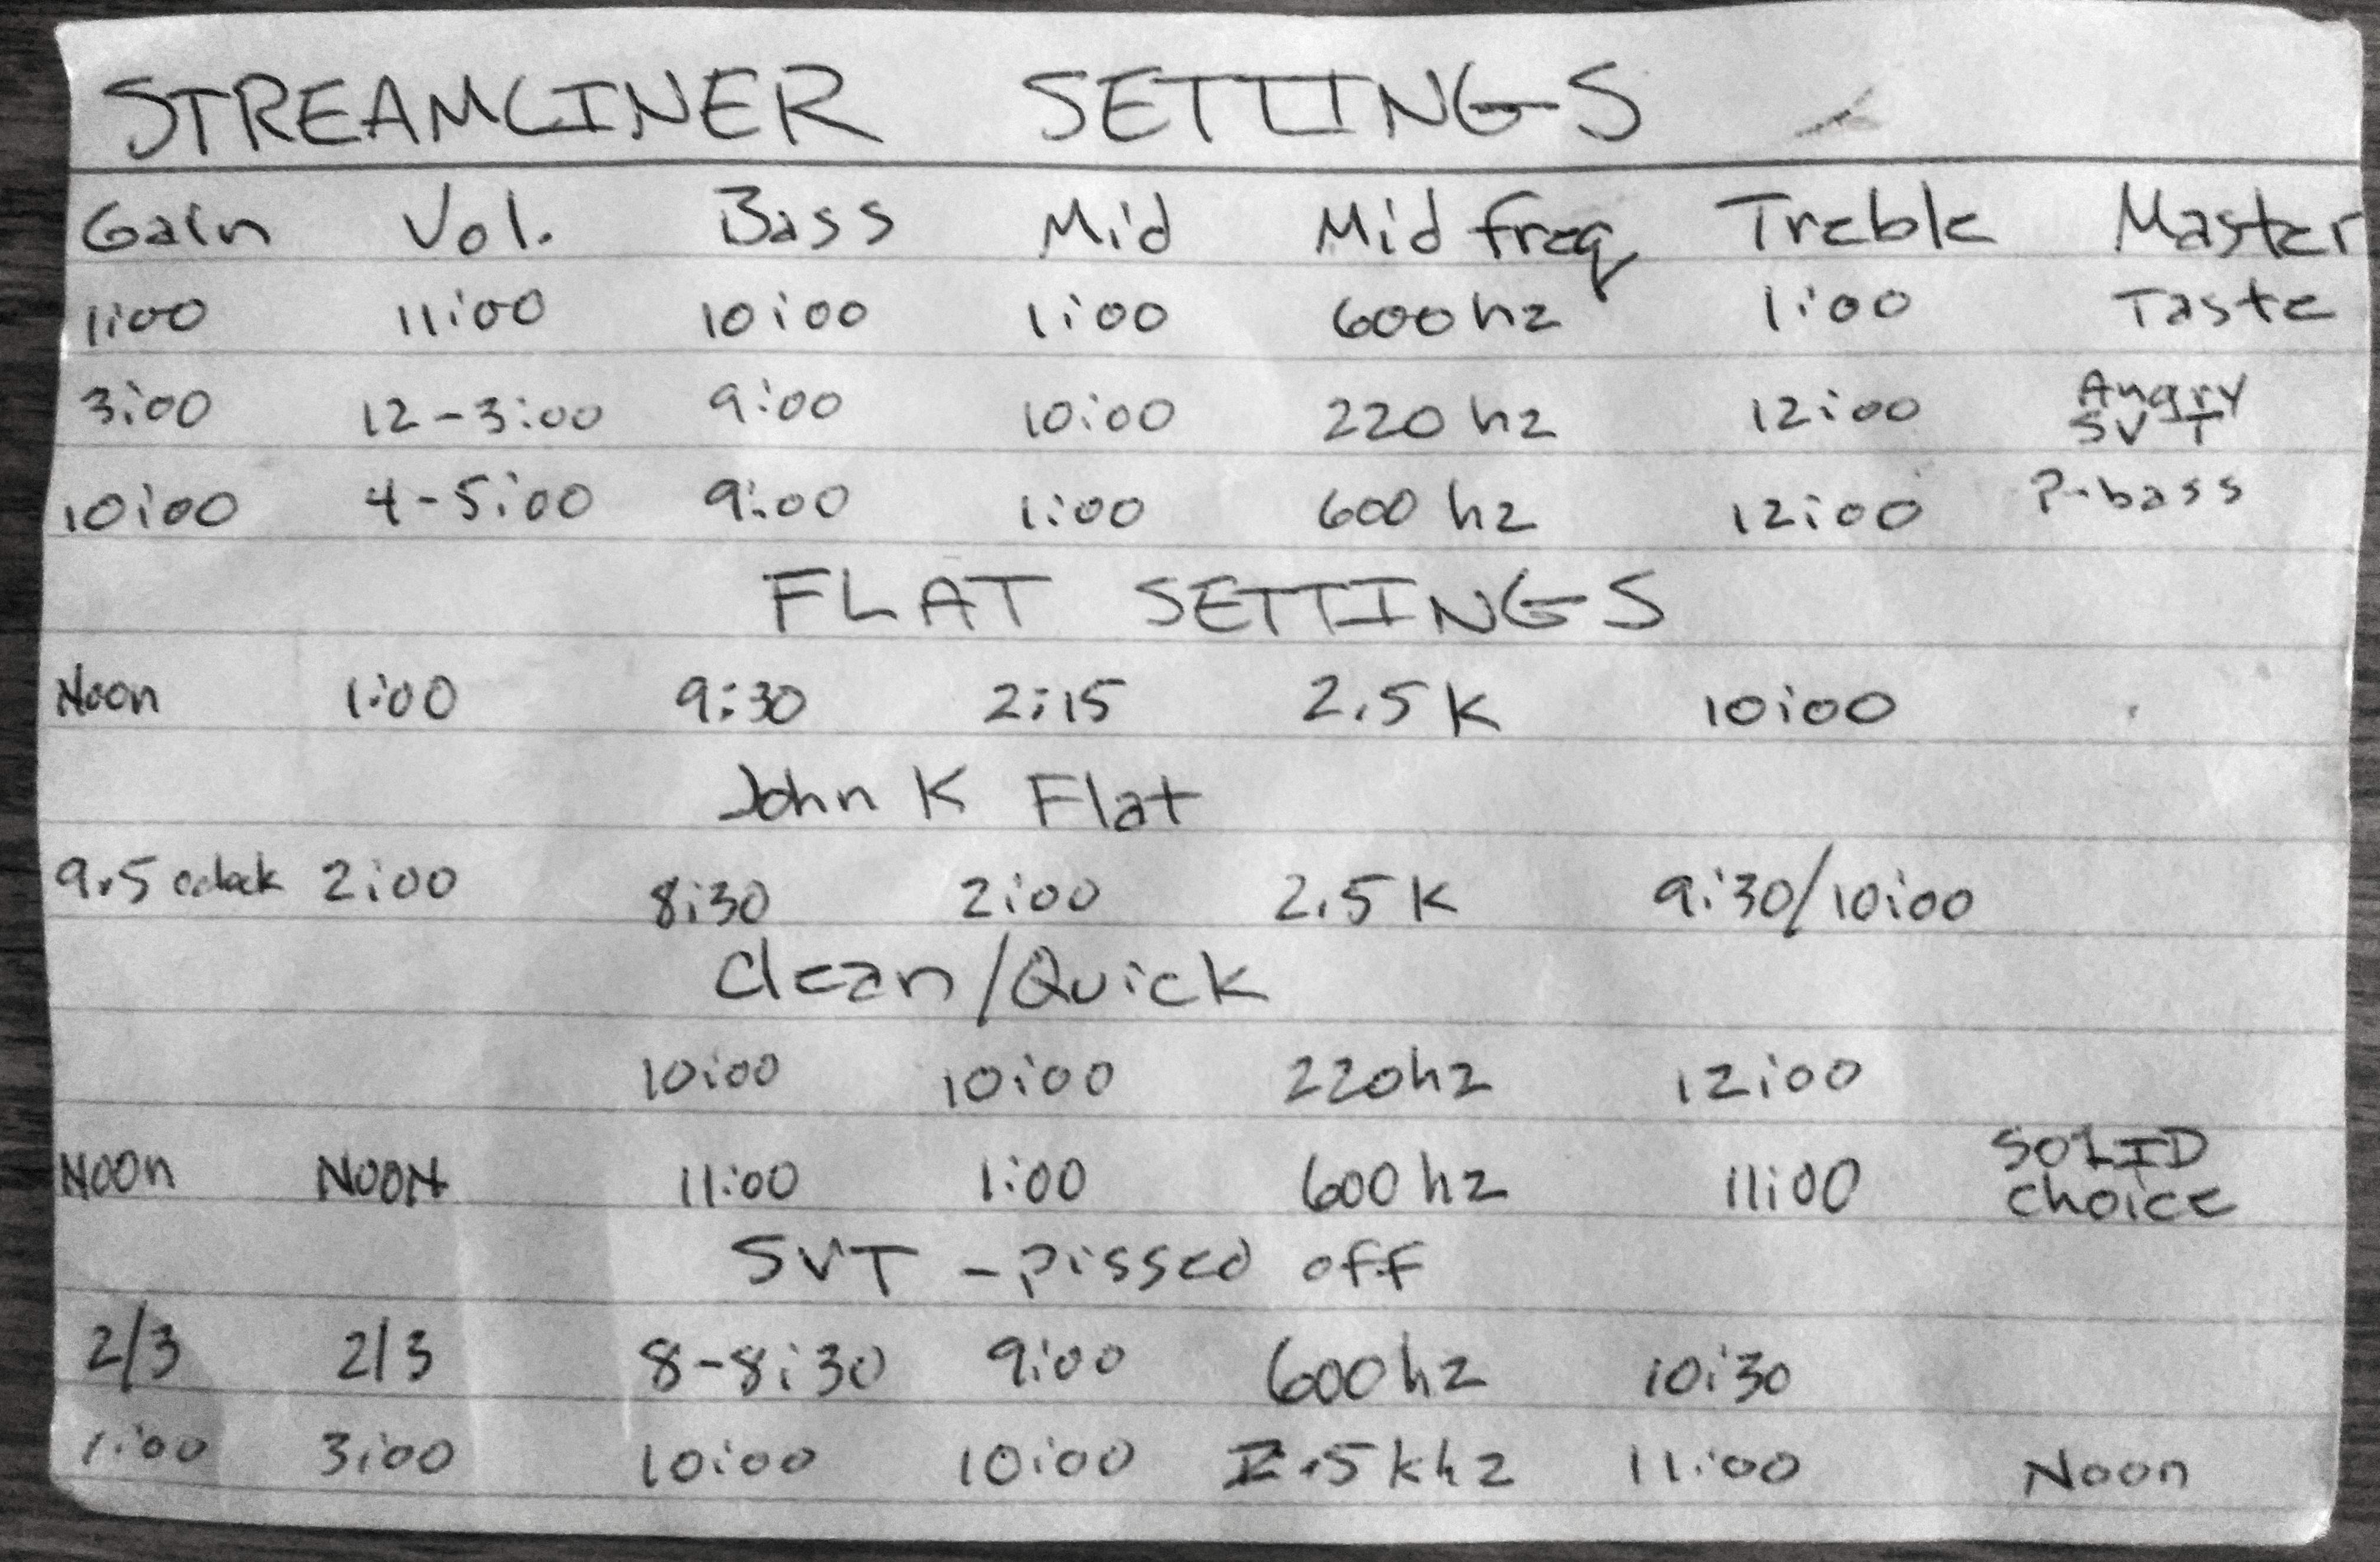 STREAMLINER SETTINGS
Gain Vol. Bass Mid Mid freq Treble Master
1:00 11:00 10:00 1:00 600hz 1:00 Taste
3:00 12-3:00 9:00 10:00 220 hz 12:00 Angry SVT
10:00 4-5:00 9:00 1:00 600 hz 12:00 P-bass
FLAT SETTINGS
Noon 1:00 9:30 2:15 2.5 K 10:00
John K Flat
9.5 oclock 2:00 8:30 2:00 2.5 K 9:30/10:00
Clean/Quick
10:00 10:00 220hz 12:00
Noon NOON 11:00 1:00 600 hz 11:00 SOLID choice
SVT - pissed off
2/3 2/3 8-8:30 9:00 600hz 10:30
1:00 3:00 10:00 10:00 2.5 khz 11:00 Noon